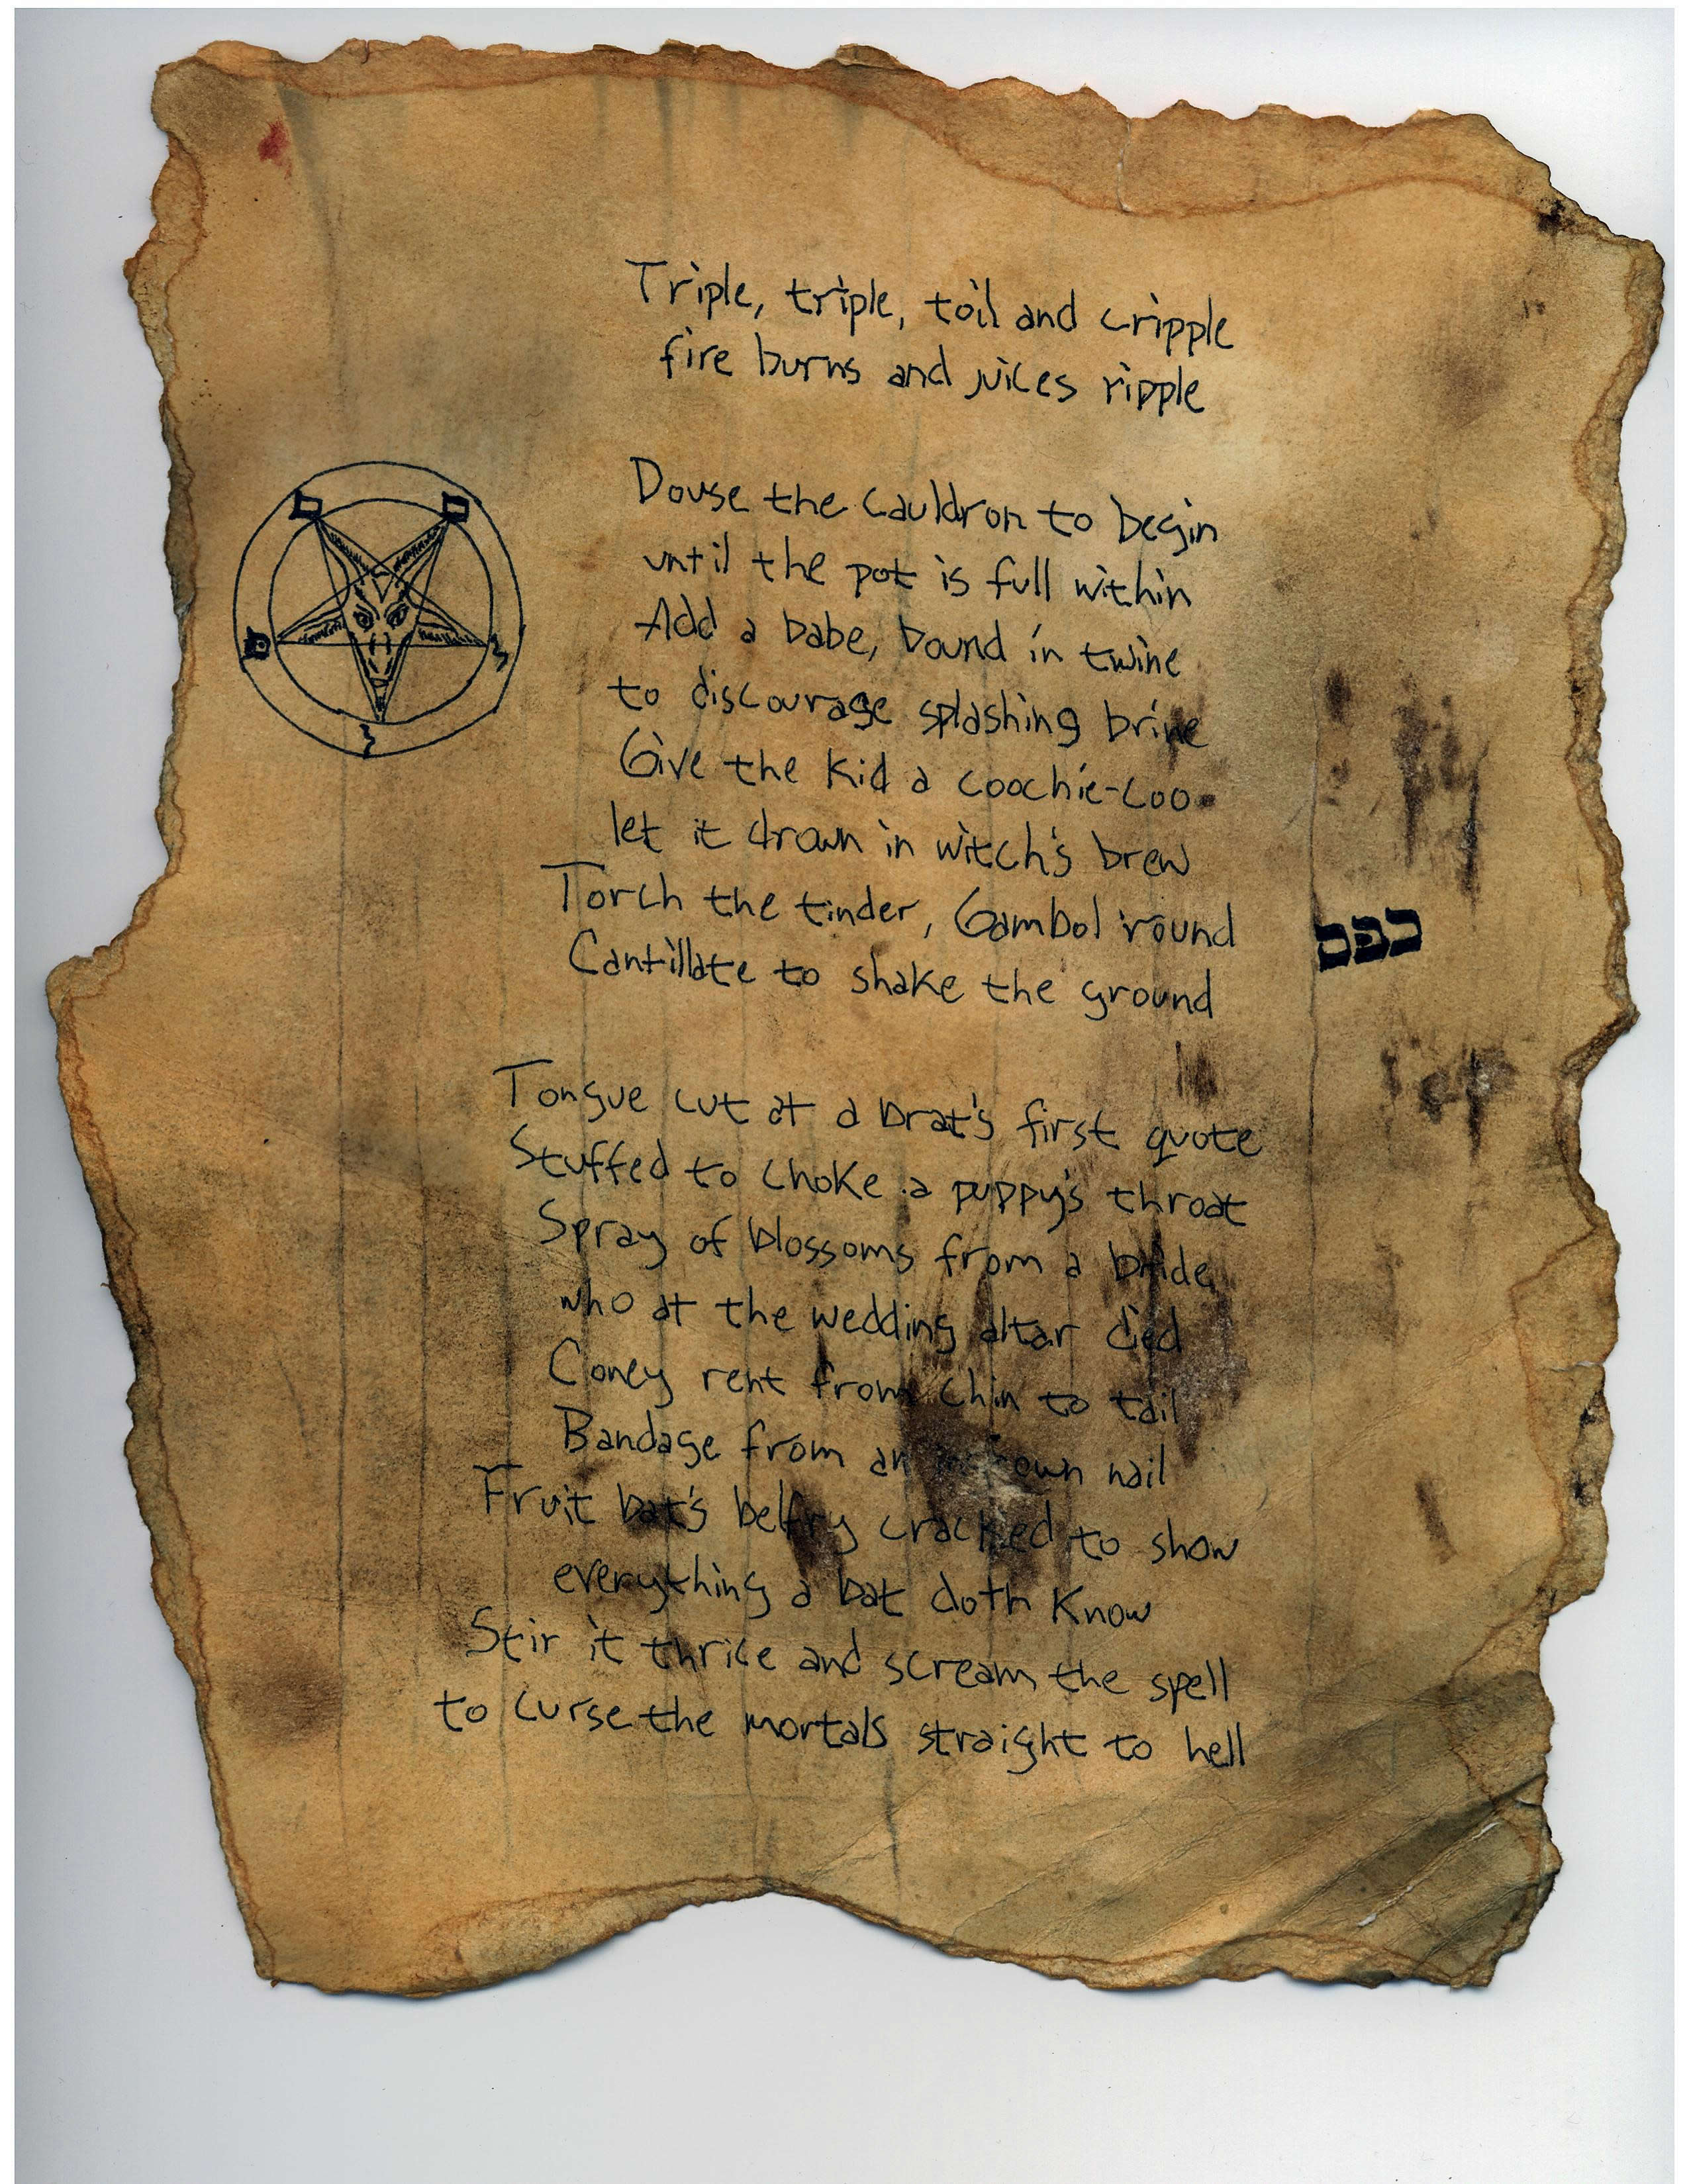 Triple, triple, toil and cripple
fire burns and juices ripple
Douse the cauldron to begin
until the pot is full within
Add a babe, bound in twine
to discourage splashing brine
Give the kid a coochie-coo
let it drown in witch's brew
Torch the tinder, Gambol 'round
Cantillate to shake the ground
Tongue cut at a brat's first quote
Stuffed to choke a puppy's throat
Spray of blossoms from a bride
who at the wedding altar died
Coney rent from chin to tail
Bandage from an nail
Fruit bat's belfry cracked to show
everything a bat doth know
Stir it thrice and scream the spell
to curse the mortals straight to hell